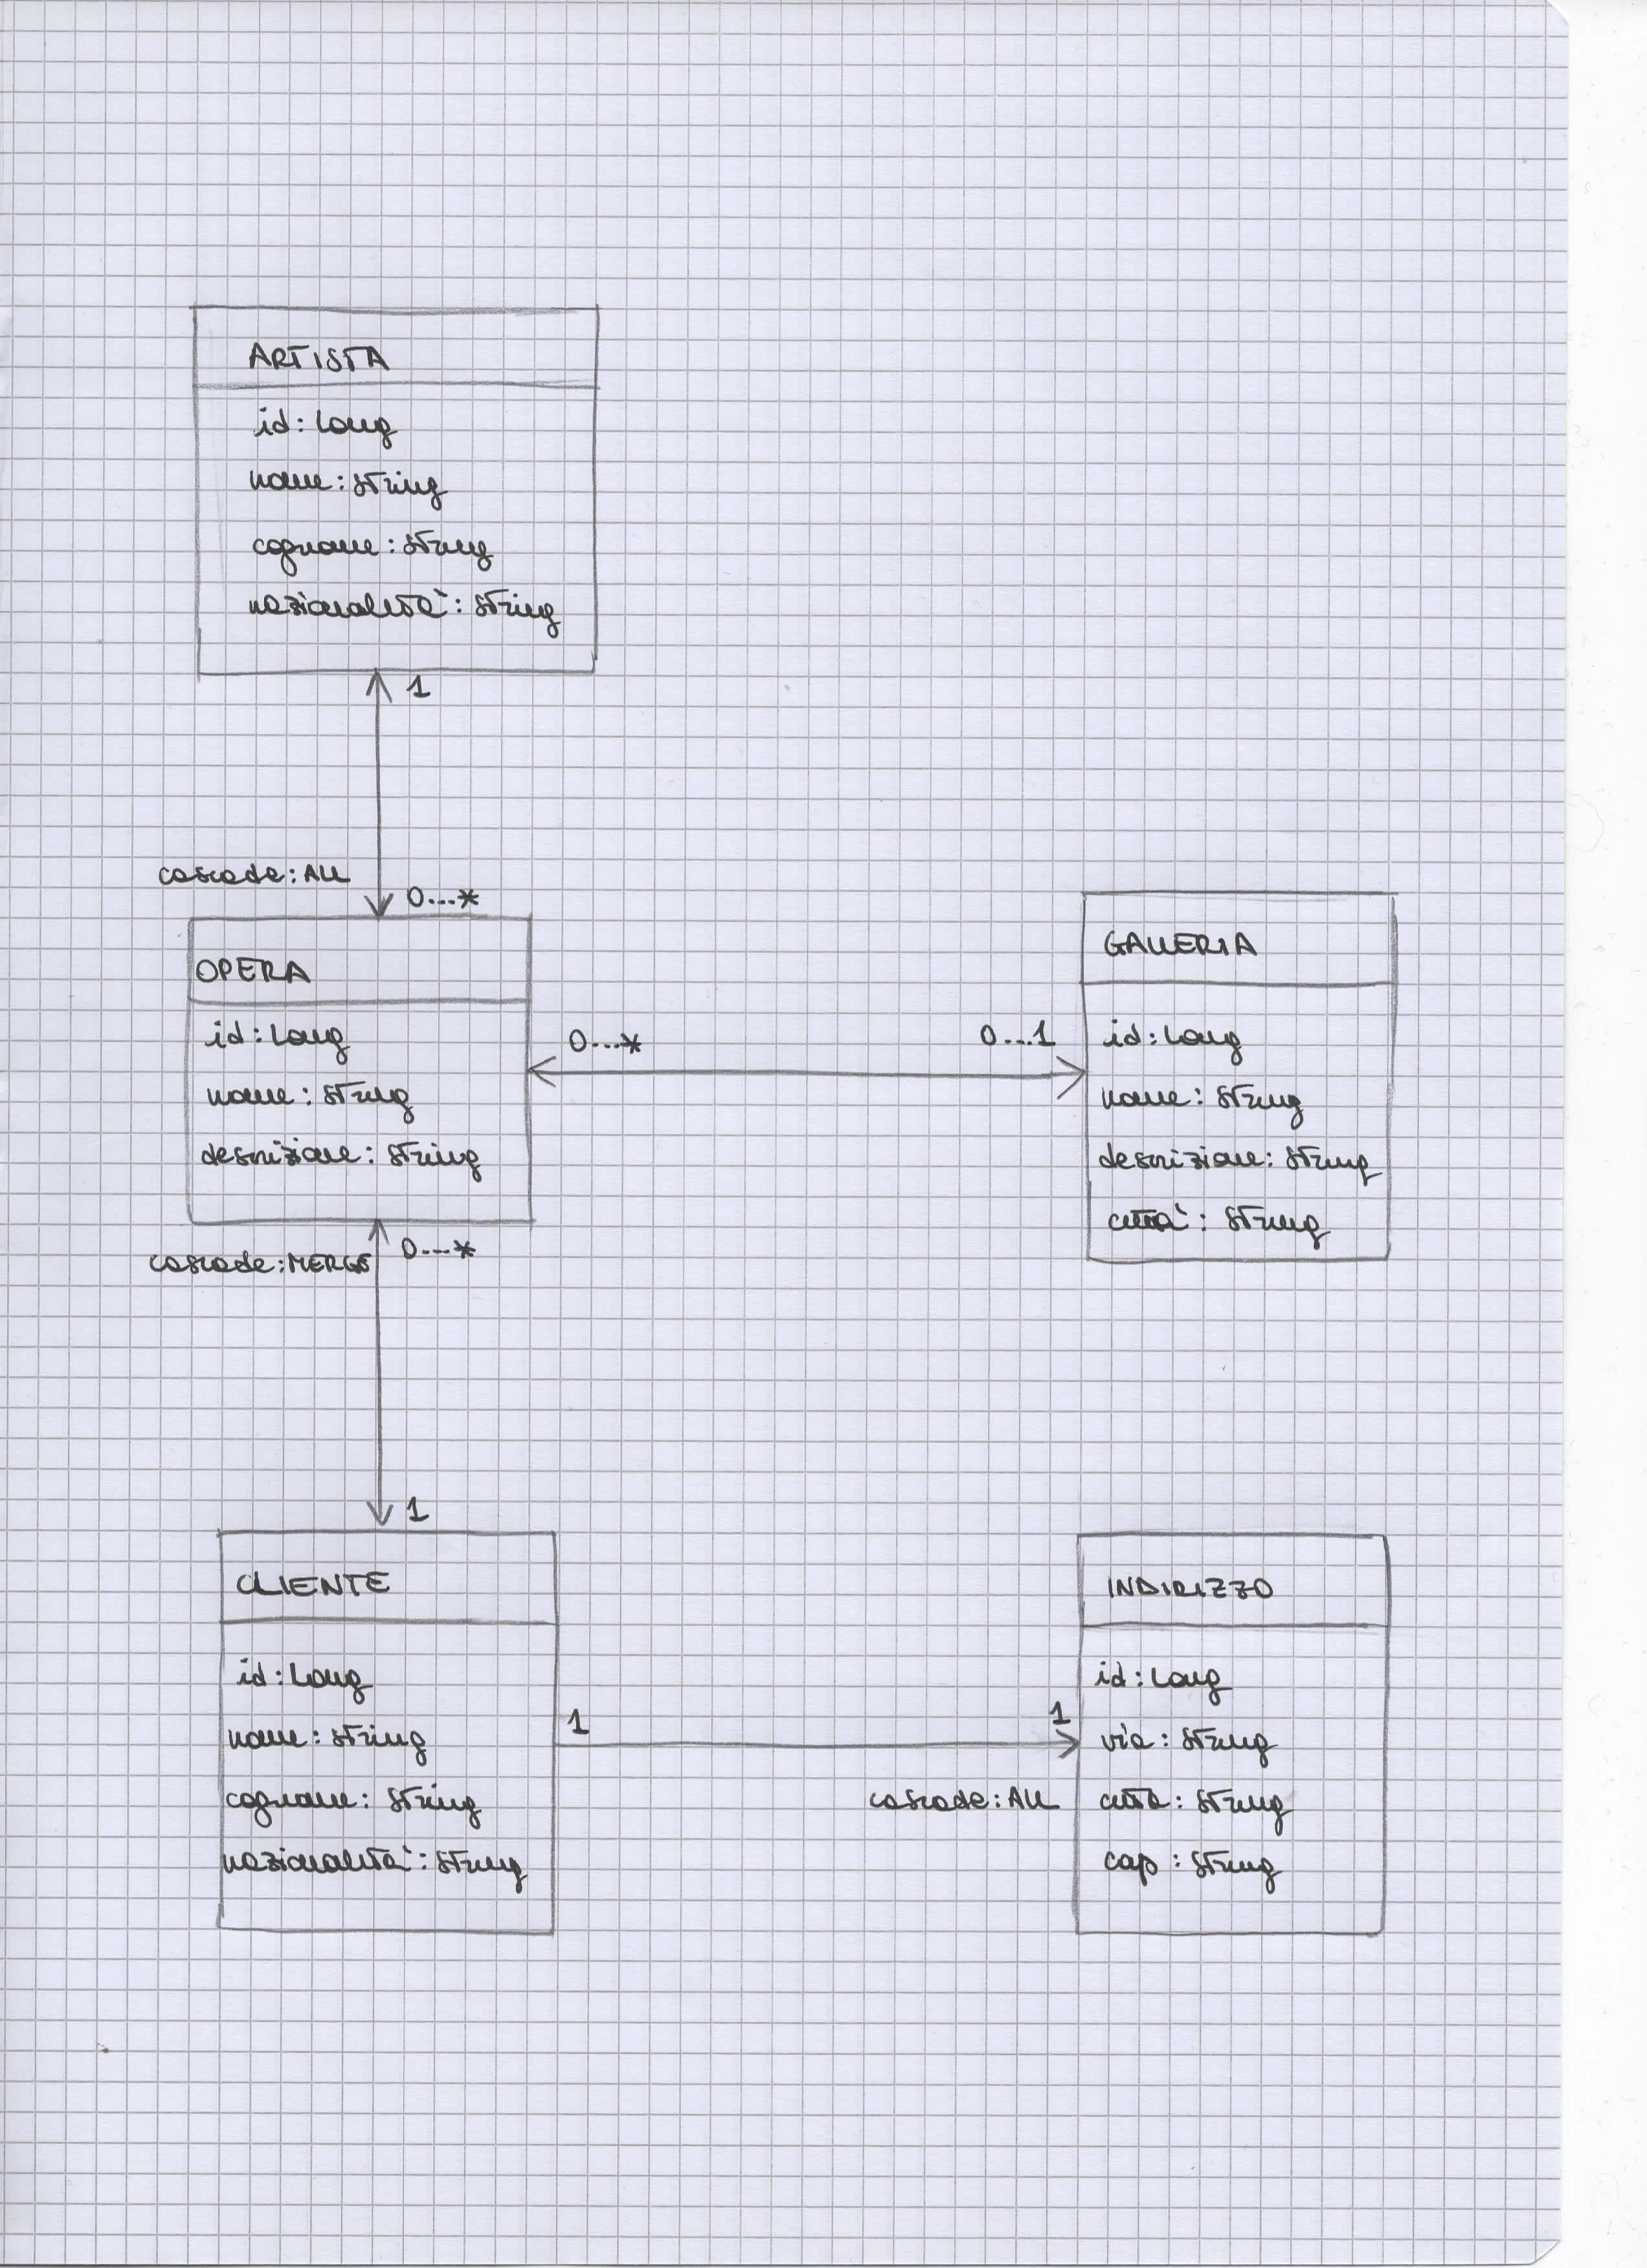 ARTISTA
id: Long
nome: String
cognome: String
nazionalità: String
1
cascade: ALL
0...*
OPERA
id: Long
nome: String
descrizione: String
0...*
0...1
GALLERIA
id: Long
nome: String
descrizione: String
città: String
cascade: MERGE
0...*
1
CLIENTE
id: Long
nome: String
cognome: String
nazionalità: String
1
1
cascade: ALL
INDIRIZZO
id: Long
via: String
città: String
cap: String